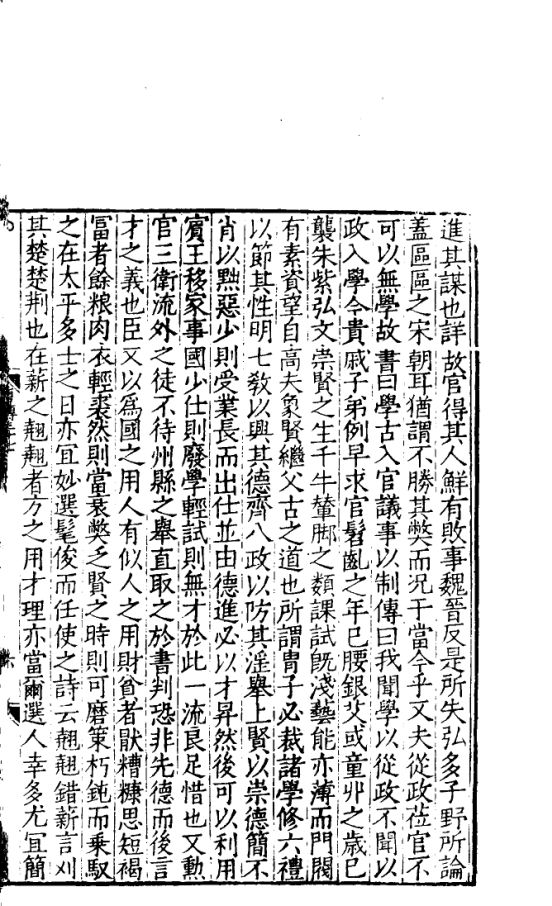 進其謀也詳故官得其人鮮有敗事魏晉反是所失弘多子野所論
蓋區區之宋朝耳猶謂不勝其弊而況于當今乎又夫從政莅官不
可以無學故書曰學古入官議事以制傳曰我聞學以從政不聞以
政入學今貴戚子弟例早求官髫齓之年已腰銀艾或童丱之歲已
襲朱紫弘文崇賢之生千牛輦脚之類課試既淺藝能亦薄而門閥
有素資望自高夫象賢繼父古之道也所謂冑子必裁諸學修六禮
以節其性明七敎以興其德齊八政以防其淫舉上賢以崇德簡不
肖以黜惡少則受業長而出仕並由德進必以才昇然後可以利用
賓王移家事國少仕則廢學輕試則無才於此一流良足惜也又勲
官三衛流外之徒不待州縣之舉直取之於書判恐非先德而後言
才之義也臣又以爲國之用人有似人之用財貧者猒糟糠思短褐
冨者餘粮肉衣輕裘然則當衰弊乏賢之時則可磨策朽鈍而乘馭
之在太平多士之日亦冝妙選髦俊而任使之詩云翹翹錯薪言刈
其楚楚荆也在薪之翹翹者方之用才理亦當爾選人幸多尤冝簡